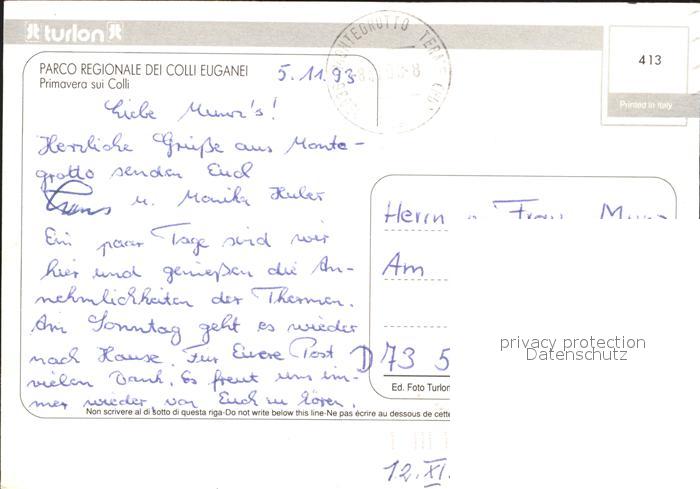 turlon
PARCO REGIONALE DEI COLLI EUGANEI
Primavera sui Colli
5.11.93
MONTEGROTTO TERME
413
Printed in Italy
Liebe Munz's!
Herzliche Grüße aus Monte-
grotto senden Euch
u. Monika Huber
Ein paar Tage sind wir
hier und genießen die An-
nehmlichkeiten der Thermen.
Am Sonntag geht es wieder
nach Hause. Für Euere Post
vielen Dank. Es freut uns im-
mer wieder von Euch zu hören.
Herrn u. Frau
Am
D 73 5
privacy protection
Datenschutz
Ed. Foto Turlon
Non scrivere al di sotto di questa riga-Do not write below this line-Ne pas écrire au dessous de cette
12.XI.